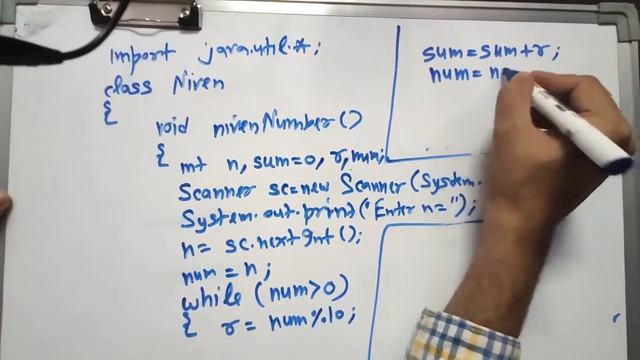 import java.util.*;
class Niven
{
void nivenNumber()
{ int n, sum=0, r, num;
Scanner sc=new Scanner(System.
System.out.print("Enter n=");
n= sc.nextInt();
num = n;
while (num>0)
{ r= num%10;
sum=sum+r;
num=n